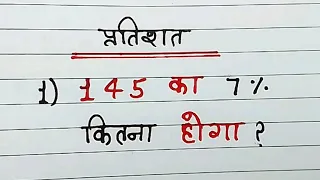 प्रतिशत
1) 145 का 7%.
कितना होगा ?